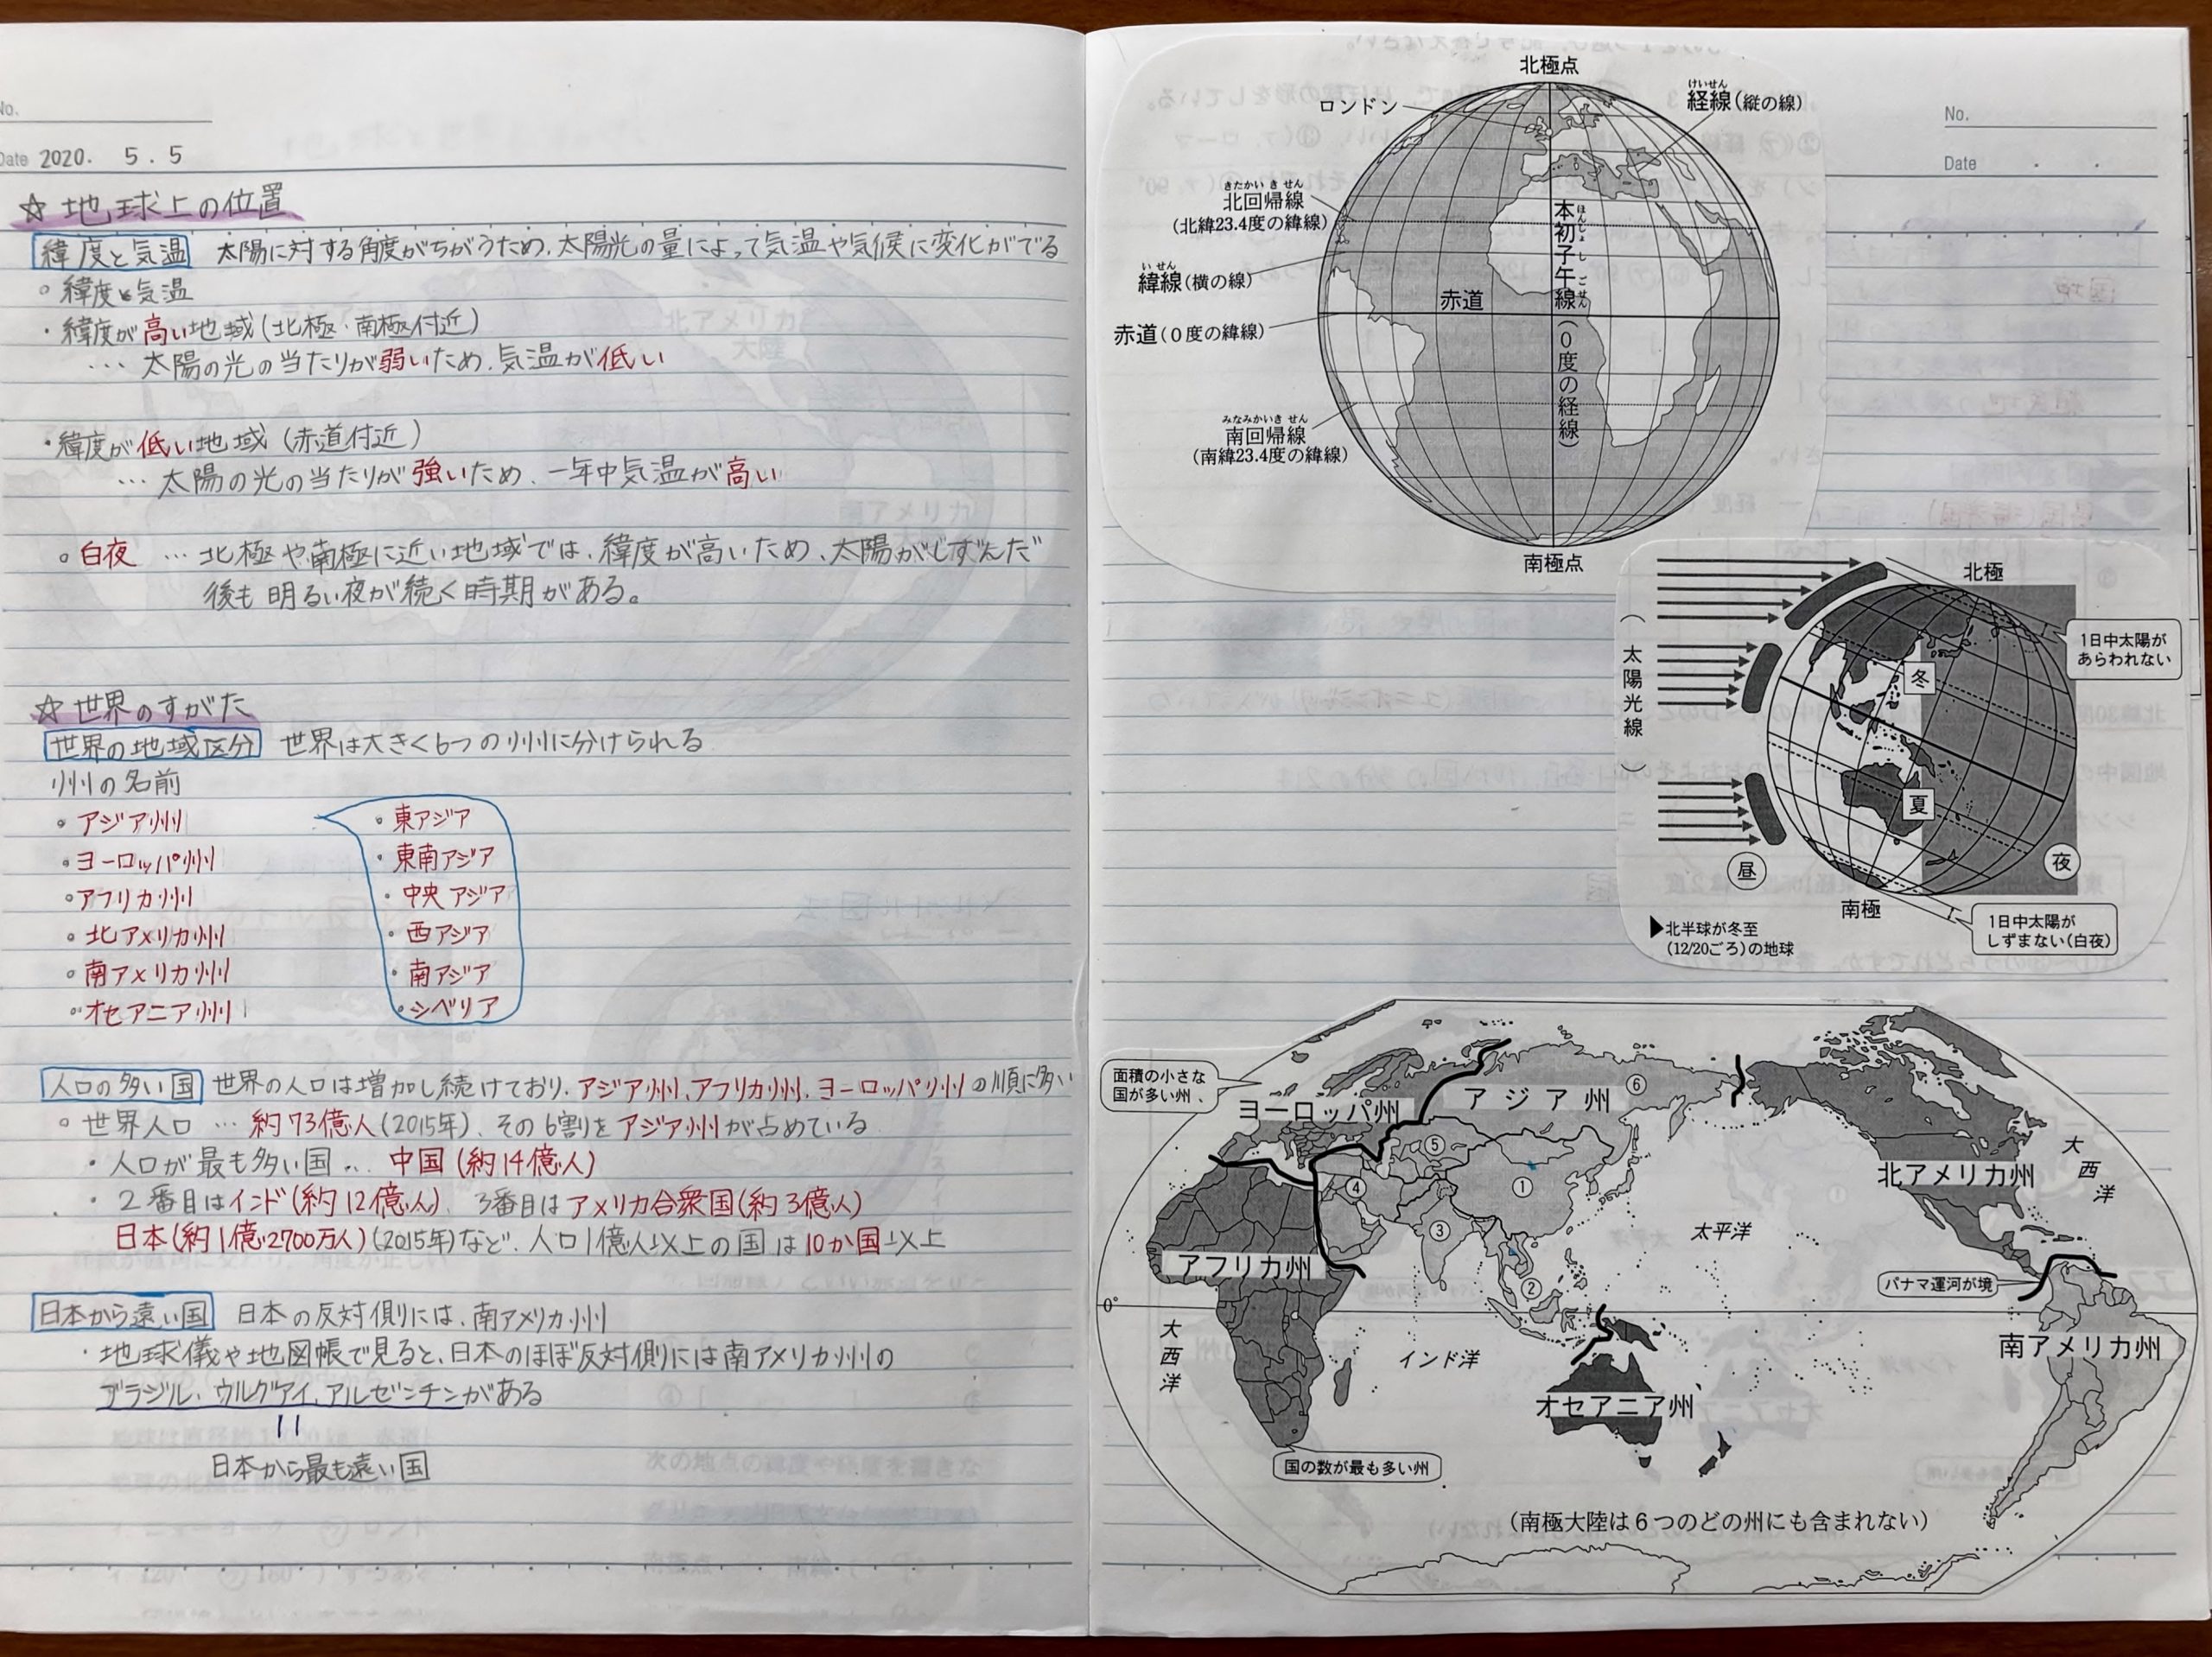 No.
Date 2020. 5. 5
☆ 地球上の位置
緯度と気温 太陽に対する角度がちがうため、太陽光の量によって気温や気候に変化がでる
○ 緯度と気温
・緯度が高い地域(北極・南極付近)
… 太陽の光の当たりが弱いため、気温が低い
・緯度が低い地域(赤道付近)
… 太陽の光の当たりが強いため、一年中気温が高い
○ 白夜 … 北極や南極に近い地域では、緯度が高いため、太陽がしずんだ
後も明るい夜が続く時期がある。
☆ 世界のすがた
世界の地域区分 世界は大きく6つの州に分けられる
州の名前
○ アジア州
○ ヨーロッパ州
○ アフリカ州
○ 北アメリカ州
○ 南アメリカ州
○ オセアニア州
・東アジア
・東南アジア
・中央アジア
・西アジア
・南アジア
・シベリア
人口の多い国 世界の人口は増加し続けており、アジア州、アフリカ州、ヨーロッパ州の順に多い
○ 世界人口 … 約73億人(2015年)、その6割をアジア州が占めている
・人口が最も多い国 … 中国(約14億人)
・2番目はインド(約12億人)、3番目はアメリカ合衆国(約3億人)
日本(約1億2700万人)(2015年)など、人口1億人以上の国は10か国以上
日本から遠い国 日本の反対側には、南アメリカ州
・地球儀や地図帳で見ると、日本のほぼ反対側には南アメリカ州の
ブラジル、ウルグアイ、アルゼンチンがある
||
日本から最も遠い国
No.
Date . .
北極点
ロンドン
けいせん
経線(縦の線)
きたかいきせん
北回帰線
(北緯23.4度の緯線)
いせん
緯線(横の線)
赤道
赤道(0度の緯線)
本初子午線(0度の経線)
ほんしょしごせん
みなみかいきせん
南回帰線
(南緯23.4度の緯線)
南極点
(太陽光線)
北極
1日中太陽が
あらわれない
冬
夏
昼
夜
南極
1日中太陽が
しずまない(白夜)
▶北半球が冬至
(12/20ごろ)の地球
面積の小さな
国が多い州
ヨーロッパ州
アジア州
⑥
⑤
④
①
③
②
アフリカ州
北アメリカ州
大西洋
太平洋
パナマ運河が境
0°
大西洋
インド洋
オセアニア州
南アメリカ州
国の数が最も多い州
(南極大陸は6つのどの州にも含まれない)